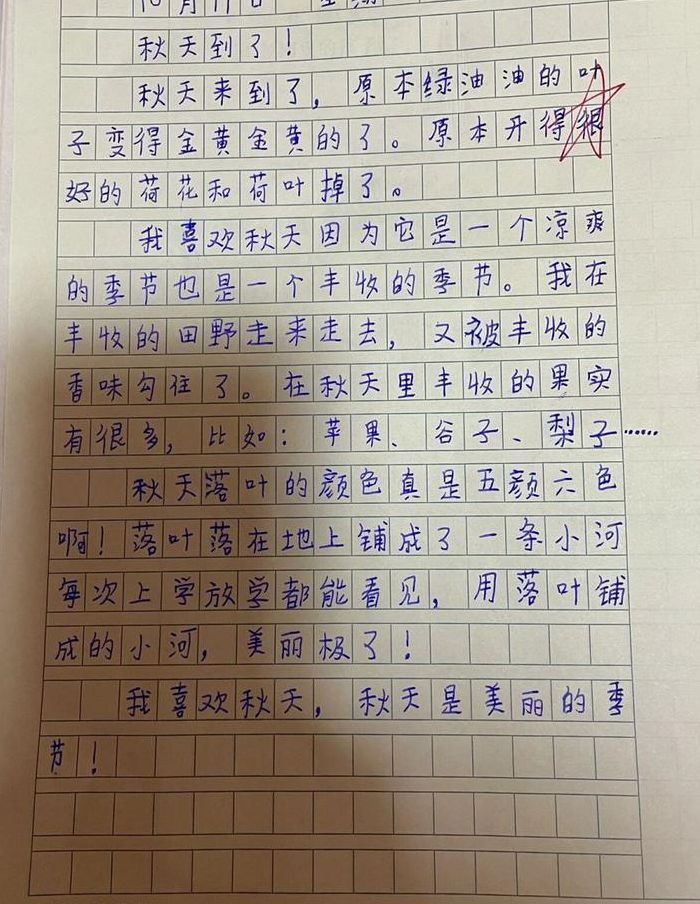 10月11日
秋天到了！
秋天来到了，原本绿油油的叶
子变得金黄金黄的了。原本开得很
好的荷花和荷叶掉了。
我喜欢秋天因为它是一个凉爽
的季节也是一个丰收的季节。我在
丰收的田野走来走去，又被丰收的
香味勾住了。在秋天里丰收的果实
有很多，比如：苹果、谷子、梨子……
秋天落叶的颜色真是五颜六色
啊！落叶落在地上铺成了一条小河
每次上学放学都能看见，用落叶铺
成的小河，美丽极了！
我喜欢秋天，秋天是美丽的季
节！